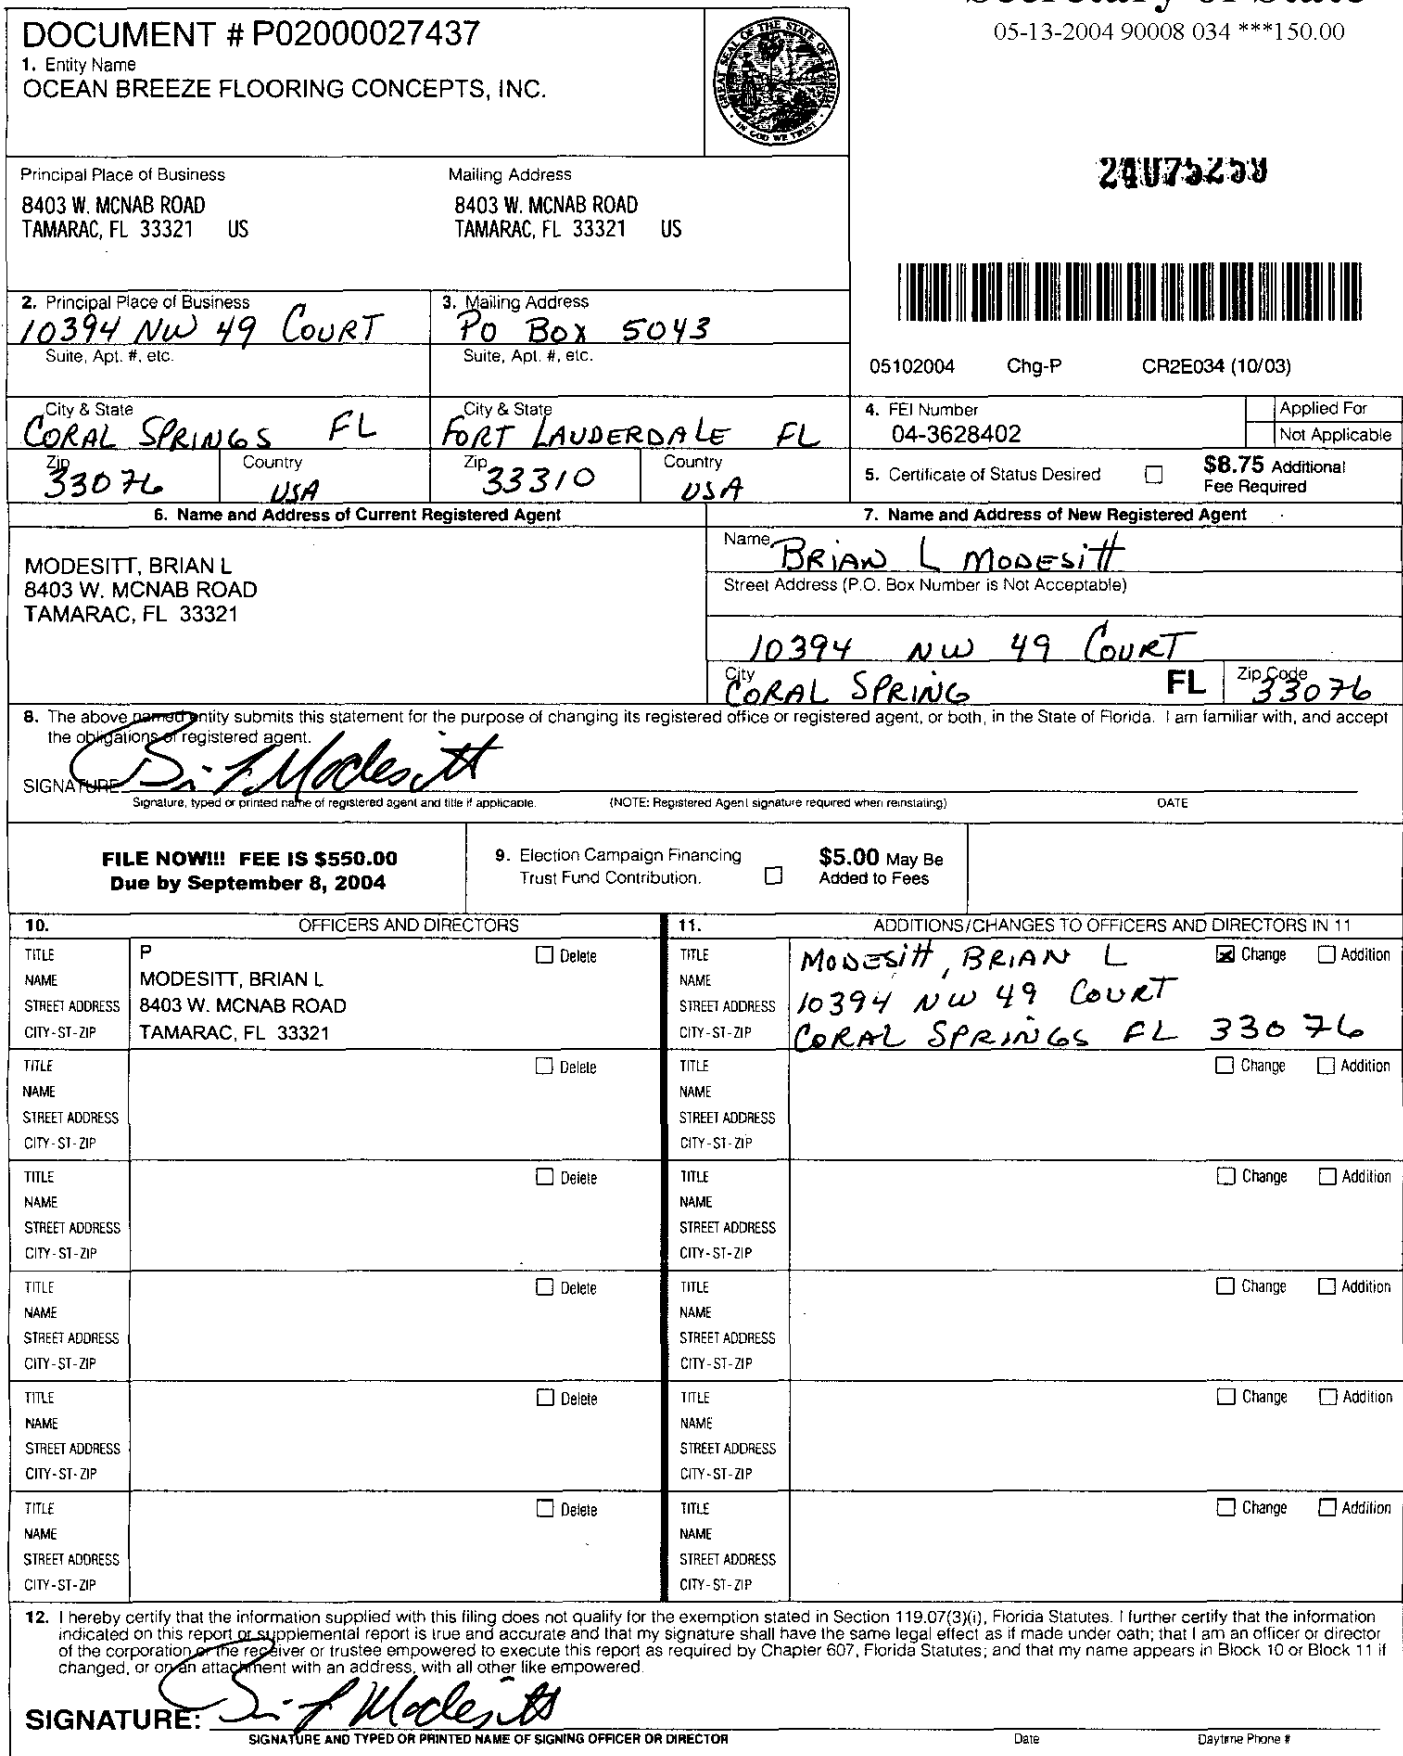 Secretary of State
05-13-2004 90008 034 ***150.00
DOCUMENT # P02000027437
1. Entity Name
OCEAN BREEZE FLOORING CONCEPTS, INC.
GREAT SEAL OF THE STATE OF FLORIDA
IN GOD WE TRUST
24075259
Principal Place of Business
8403 W. MCNAB ROAD
TAMARAC, FL 33321 US
Mailing Address
8403 W. MCNAB ROAD
TAMARAC, FL 33321 US
2. Principal Place of Business
10394 NW 49 COURT
Suite, Apt. #, etc.
3. Mailing Address
PO BOX 5043
Suite, Apt. #, etc.
05102004 Chg-P CR2E034 (10/03)
City & State
CORAL SPRINGS FL
City & State
FORT LAUDERDALE FL
4. FEI Number
04-3628402
Applied For
Not Applicable
Zip
33076
Country
USA
Zip
33310
Country
USA
5. Certificate of Status Desired
$8.75 Additional
Fee Required
6. Name and Address of Current Registered Agent
MODESITT, BRIAN L
8403 W. MCNAB ROAD
TAMARAC, FL 33321
7. Name and Address of New Registered Agent
Name
BRIAN L MODESITT
Street Address (P.O. Box Number is Not Acceptable)
10394 NW 49 COURT
City
CORAL SPRING
FL
Zip Code
33076
8. The above named entity submits this statement for the purpose of changing its registered office or registered agent, or both, in the State of Florida. I am familiar with, and accept
the obligations of registered agent.
SIGNATURE Bri L Modesitt
Signature, typed or printed name of registered agent and title if applicable. (NOTE: Registered Agent signature required when reinstating) DATE
FILE NOW!!! FEE IS $550.00
Due by September 8, 2004
9. Election Campaign Financing
Trust Fund Contribution.
$5.00 May Be
Added to Fees
10. OFFICERS AND DIRECTORS
11. ADDITIONS/CHANGES TO OFFICERS AND DIRECTORS IN 11
TITLE P Delete
NAME MODESITT, BRIAN L
STREET ADDRESS 8403 W. MCNAB ROAD
CITY-ST-ZIP TAMARAC, FL 33321
TITLE MODESITT, BRIAN L Change Addition
NAME
STREET ADDRESS 10394 NW 49 COURT
CITY-ST-ZIP CORAL SPRINGS FL 33076
TITLE Delete
NAME
STREET ADDRESS
CITY-ST-ZIP
TITLE Change Addition
NAME
STREET ADDRESS
CITY-ST-ZIP
TITLE Delete
NAME
STREET ADDRESS
CITY-ST-ZIP
TITLE Change Addition
NAME
STREET ADDRESS
CITY-ST-ZIP
TITLE Delete
NAME
STREET ADDRESS
CITY-ST-ZIP
TITLE Change Addition
NAME
STREET ADDRESS
CITY-ST-ZIP
TITLE Delete
NAME
STREET ADDRESS
CITY-ST-ZIP
TITLE Change Addition
NAME
STREET ADDRESS
CITY-ST-ZIP
TITLE Delete
NAME
STREET ADDRESS
CITY-ST-ZIP
TITLE Change Addition
NAME
STREET ADDRESS
CITY-ST-ZIP
12. I hereby certify that the information supplied with this filing does not qualify for the exemption stated in Section 119.07(3)(i), Florida Statutes. I further certify that the information
indicated on this report or supplemental report is true and accurate and that my signature shall have the same legal effect as if made under oath; that I am an officer or director
of the corporation or the receiver or trustee empowered to execute this report as required by Chapter 607, Florida Statutes; and that my name appears in Block 10 or Block 11 if
changed, or on an attachment with an address, with all other like empowered.
SIGNATURE: Bri L Modesitt
SIGNATURE AND TYPED OR PRINTED NAME OF SIGNING OFFICER OR DIRECTOR Date Daytime Phone #